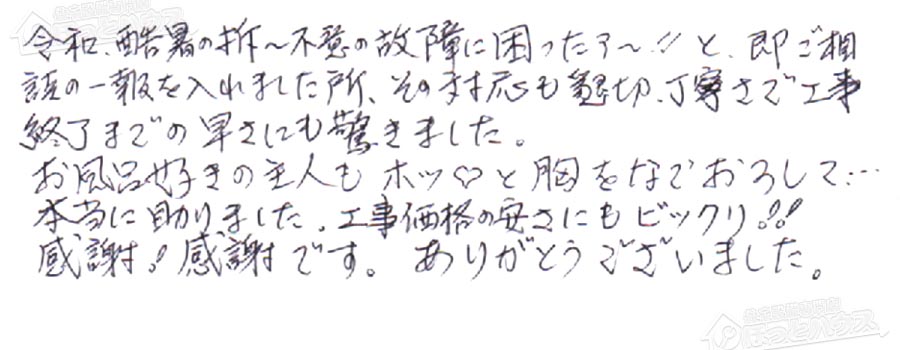 令和、酷暑の折〜不意の故障に困ったァ〜!!と、即ご相
談の一報を入れました所、その対応も懇切、丁寧さで工事
終了までの早さにも驚きました。
お風呂好きの主人もホッ♡と胸をなでおろして…
本当に助りました。工事価格の安さにもビックリ!!
感謝!感謝です。ありがとうございました。
ほっとハウス